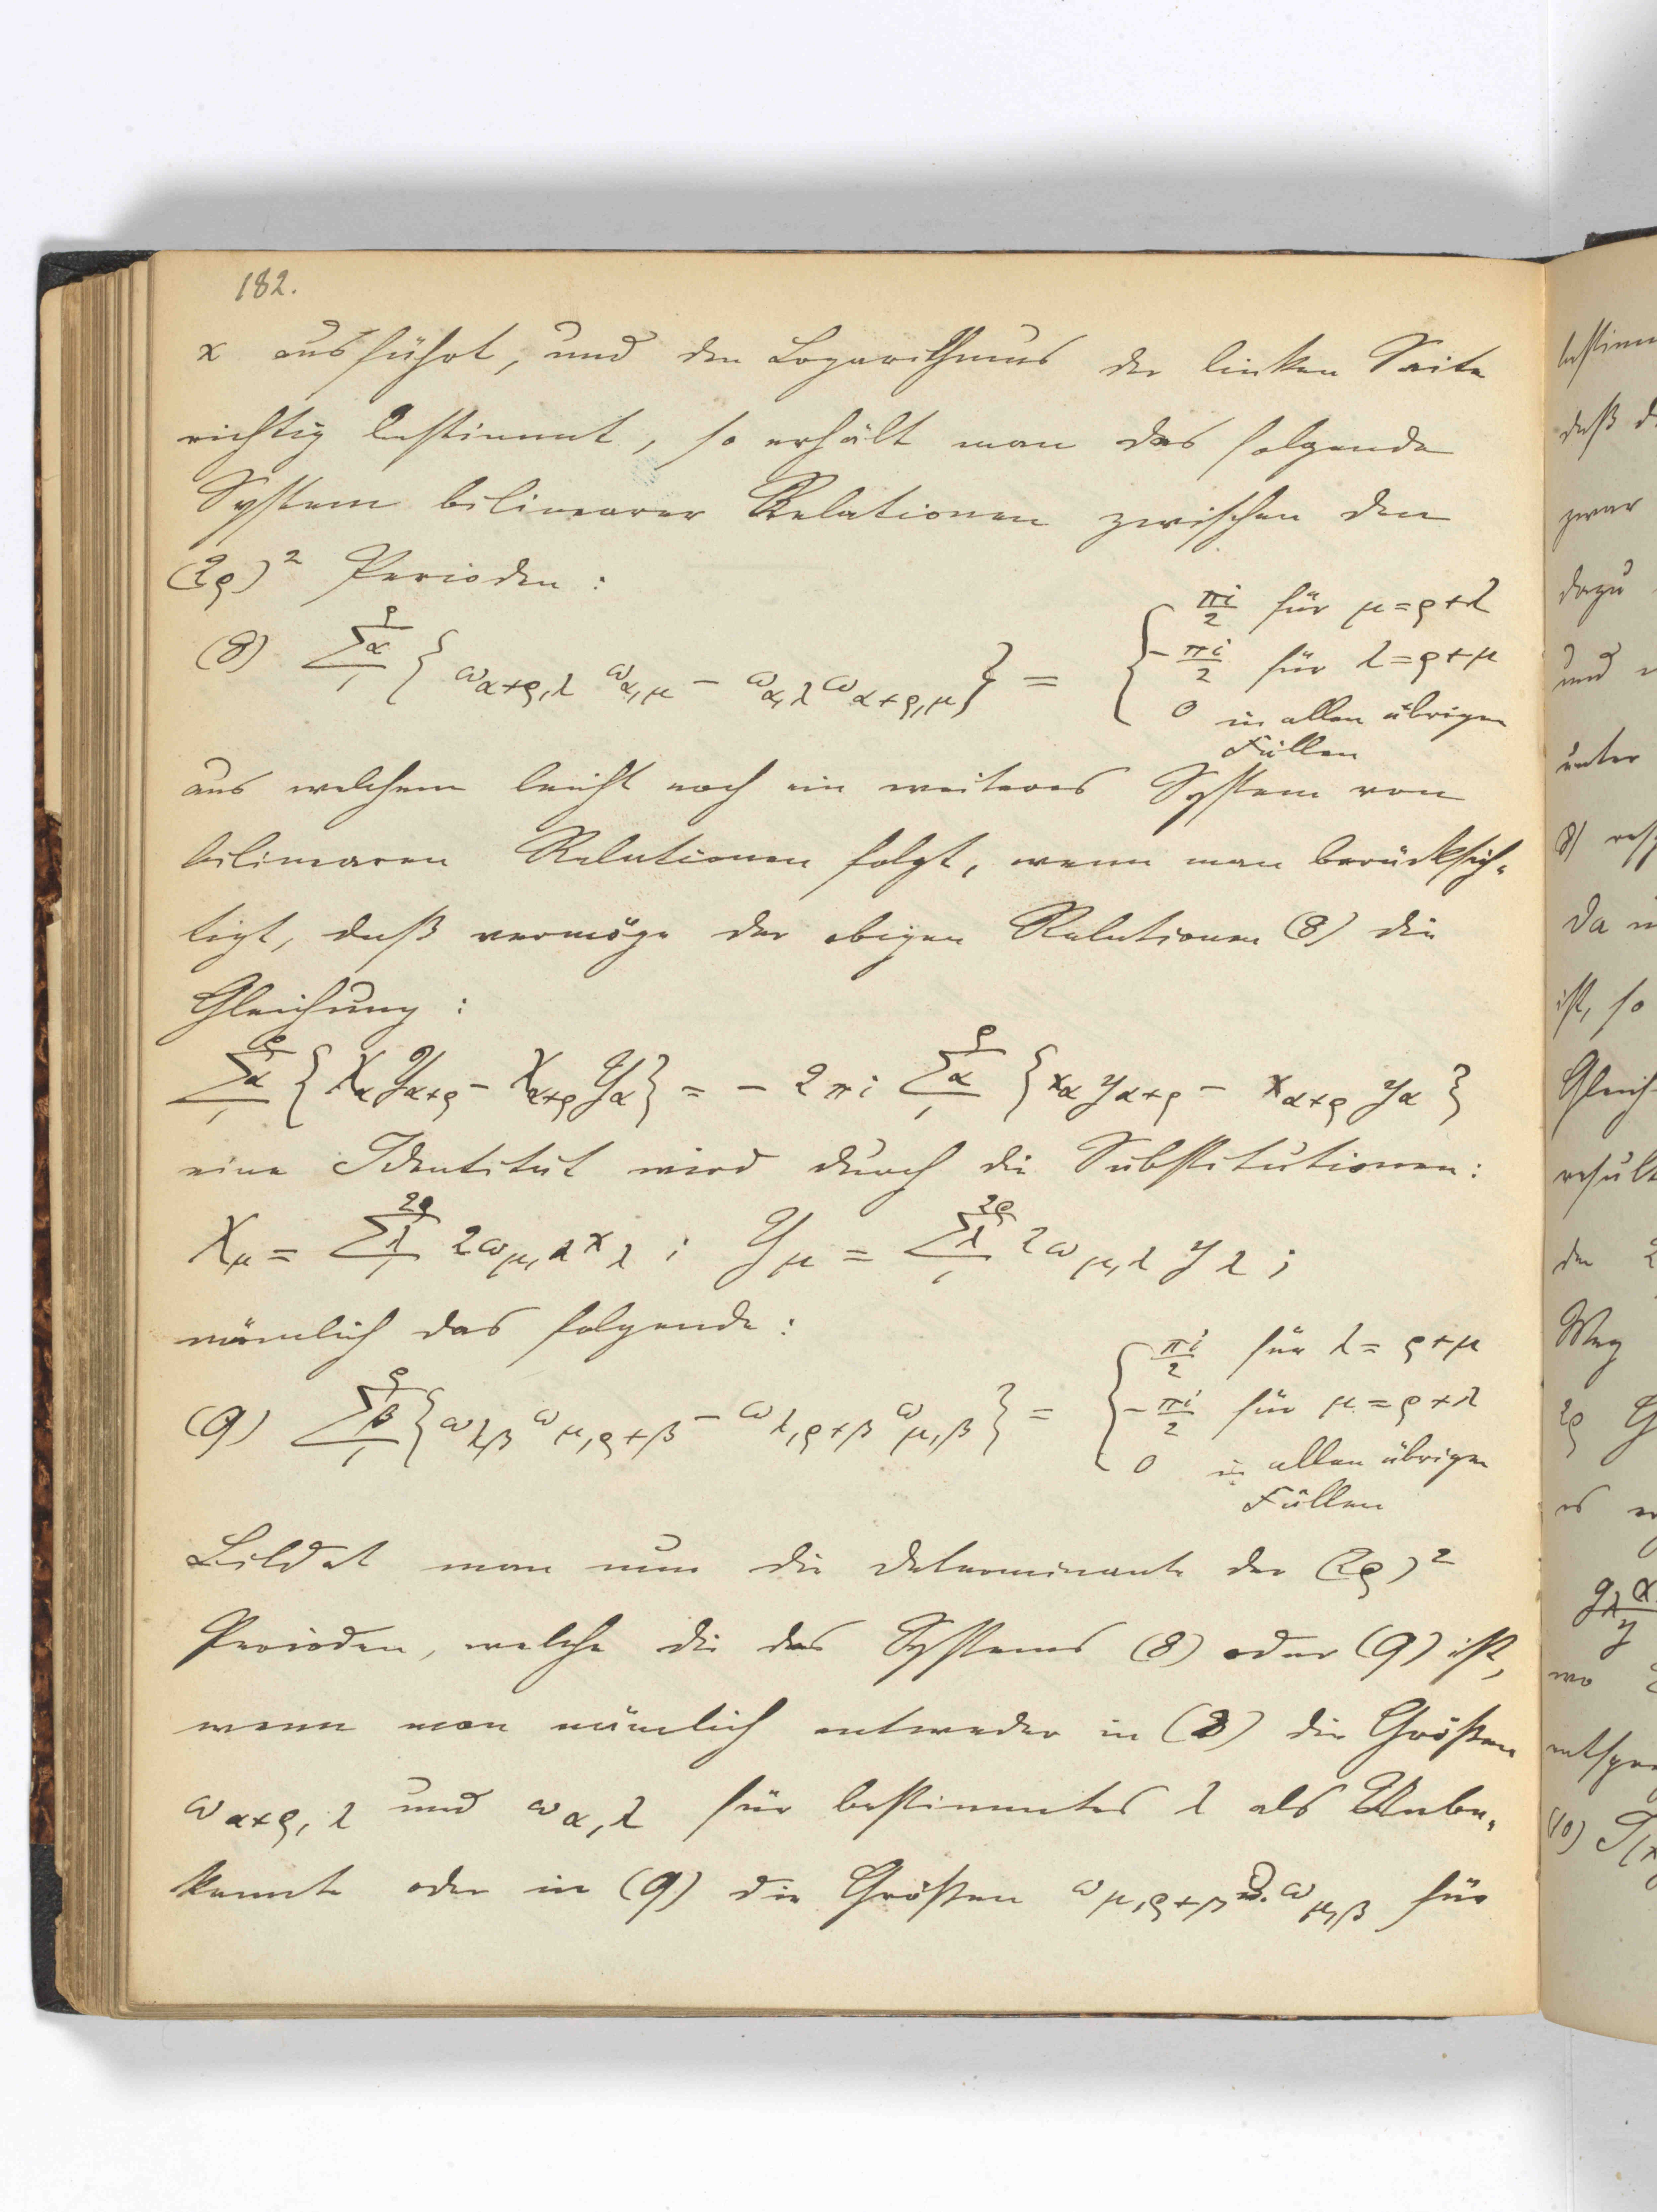 182.
x ausführt, und den Logarithmus der linken Seite
richtig bestimmt, so erhält man das folgende
System bilinearer Relationen zwischen den
(2ρ)² Perioden:
(8) \sum_{1}^{ρ}{}_{α} { ω_{α+ρ,λ} ω_{α,μ} − ω_{α,λ} ω_{α+ρ,μ} } = { πi/2 für μ=ρ+λ
−πi/2 für λ=ρ+μ
0 in allen übrigen
Fällen
aus welchem leicht noch ein weiteres System von
bilinearen Relationen folgt, wenn man berücksich-
tigt, daß vermöge der obigen Relationen (8) die
Gleichung:
\sum_{1}^{ρ}{}_{α} { X_α Y_{α+ρ} − X_{α+ρ} Y_α } = − 2πi \sum_{1}^{ρ}{}_{α} { x_α y_{α+ρ} − x_{α+ρ} y_α }
eine Identität wird durch die Substitutionen:
X_μ = \sum_{1}^{2ρ}{}_{λ} 2ω_{μ,λ} x_λ ; Y_μ = \sum_{1}^{2ρ}{}_{λ} 2ω_{μ,λ} y_λ ;
nämlich das folgende:
(9) \sum_{1}^{ρ}{}_{β} { ω_{λ,β} ω_{μ,ρ+β} − ω_{λ,ρ+β} ω_{μ,β} } = { πi/2 für λ=ρ+μ
−πi/2 für μ=ρ+λ
0 in allen übrigen
Fällen
Bildet man nun die Determinante der (2ρ)²
Perioden, welche die des Systems (8) oder (9) ist,
wenn man nämlich entweder in (8) die Größen
ω_{α+ρ,λ} und ω_{α,λ} für bestimmtes λ als Unbe-
kannte oder in (9) die Größen ω_{μ,ρ+β} u. ω_{μ,β} für
bestimm
daß d
zwar
dazu
und
unter
8)
Da
ist, so
Gleich
result
den 2
Weg
2ρ G
es
wo
entspre
(10)